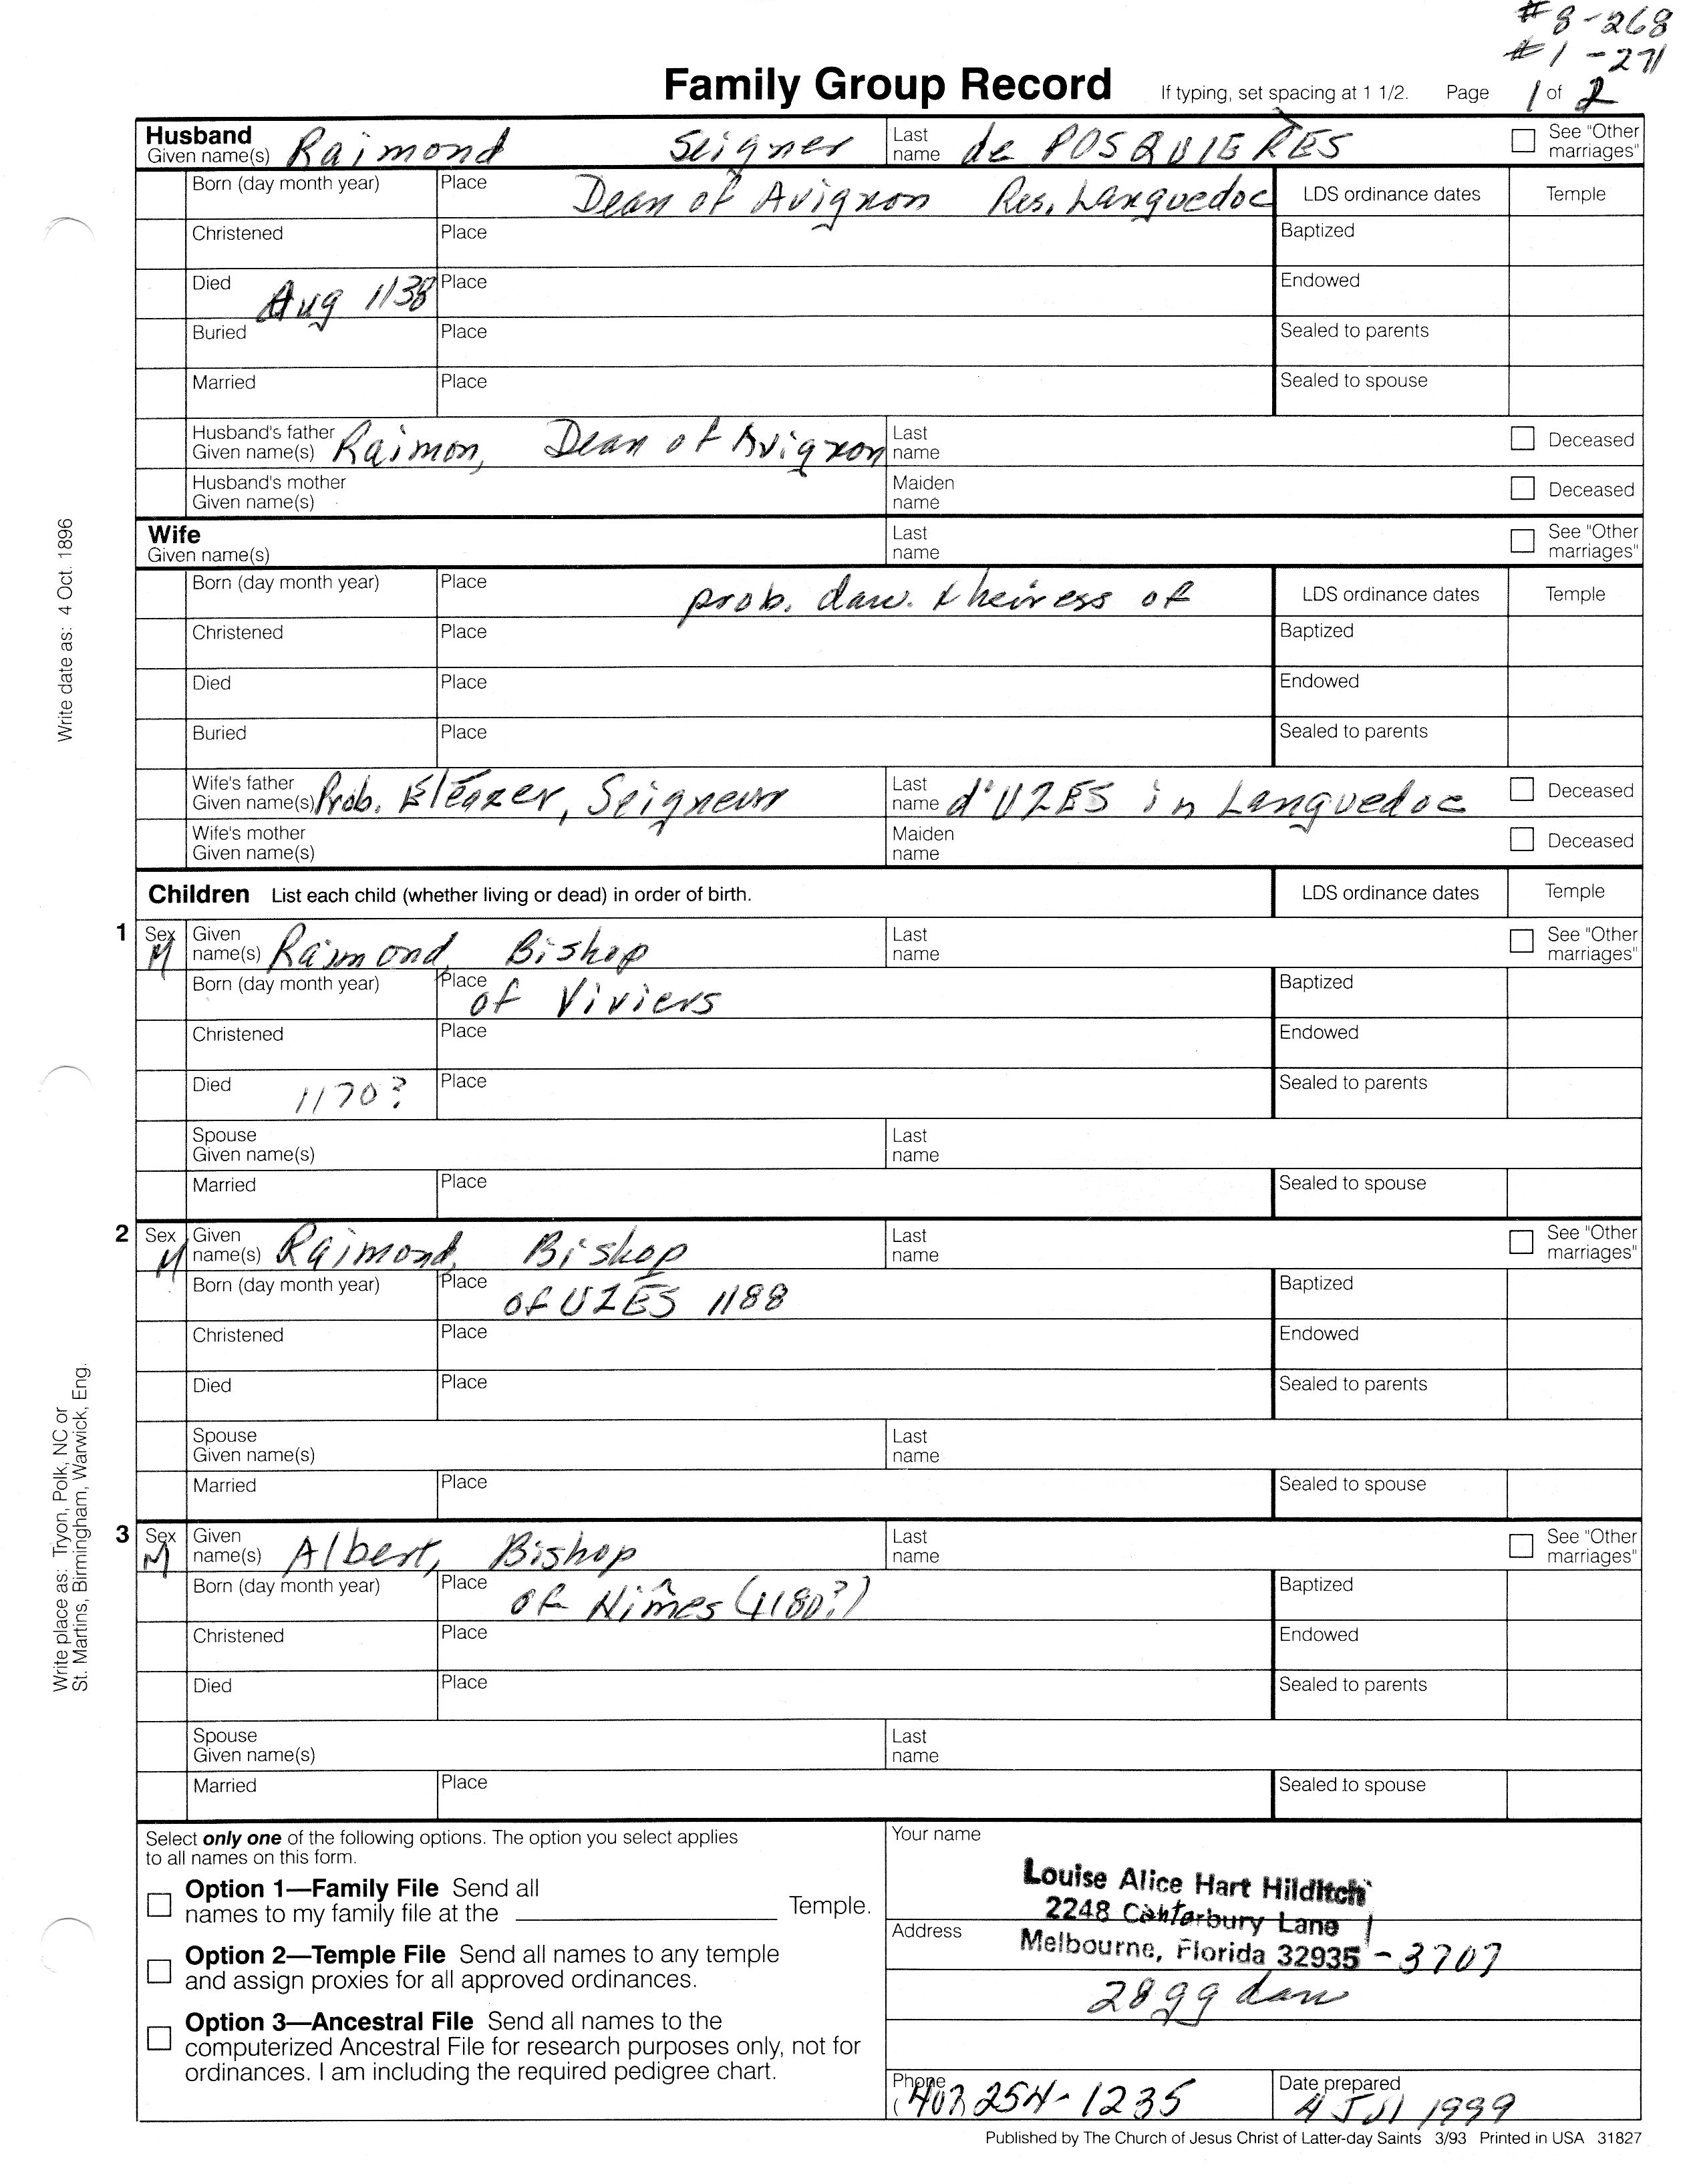 #8-268
#1-271
Family Group Record If typing, set spacing at 1 1/2. Page 1 of 2
Husband
Given name(s) Raimond Seigner Last name de POSQUIÈRES See "Other marriages"
Born (day month year) Place Dean of Avignon Res. Languedoc LDS ordinance dates Temple
Christened Place Baptized
Died Aug 1138 Place Endowed
Buried Place Sealed to parents
Married Place Sealed to spouse
Husband's father Given name(s) Raimon, Dean of Avignon Last name Deceased
Husband's mother Given name(s) Maiden name Deceased
Wife
Given name(s) Last name See "Other marriages"
Born (day month year) Place prob. dau. & heiress of LDS ordinance dates Temple
Christened Place Baptized
Died Place Endowed
Buried Place Sealed to parents
Wife's father Given name(s) Prob. Eléazer, Seigneur Last name d'UZES in Languedoc Deceased
Wife's mother Given name(s) Maiden name Deceased
Children List each child (whether living or dead) in order of birth. LDS ordinance dates Temple
1 Sex M Given name(s) Raimond, Bishop Last name See "Other marriages"
Born (day month year) Place of Viviers Baptized
Christened Place Endowed
Died 1170? Place Sealed to parents
Spouse Given name(s) Last name
Married Place Sealed to spouse
2 Sex M Given name(s) Raimond, Bishop Last name See "Other marriages"
Born (day month year) Place of UZES 1188 Baptized
Christened Place Endowed
Died Place Sealed to parents
Spouse Given name(s) Last name
Married Place Sealed to spouse
3 Sex M Given name(s) Albert, Bishop Last name See "Other marriages"
Born (day month year) Place of Nîmes (1180?) Baptized
Christened Place Endowed
Died Place Sealed to parents
Spouse Given name(s) Last name
Married Place Sealed to spouse
Select only one of the following options. The option you select applies
to all names on this form.
Option 1—Family File Send all
names to my family file at the Temple.
Option 2—Temple File Send all names to any temple
and assign proxies for all approved ordinances.
Option 3—Ancestral File Send all names to the
computerized Ancestral File for research purposes only, not for
ordinances. I am including the required pedigree chart.
Your name
Louise Alice Hart Hilditch
2248 Canterbury Lane
Address
Melbourne, Florida 32935 - 3707
28 gg dau
Phone
(407) 254-1235
Date prepared
4 Jul 1999
Published by The Church of Jesus Christ of Latter-day Saints 3/93 Printed in USA 31827
Write date as: 4 Oct. 1896
Write place as: Tryon, Polk, NC or
St. Martins, Birmingham, Warwick, Eng.